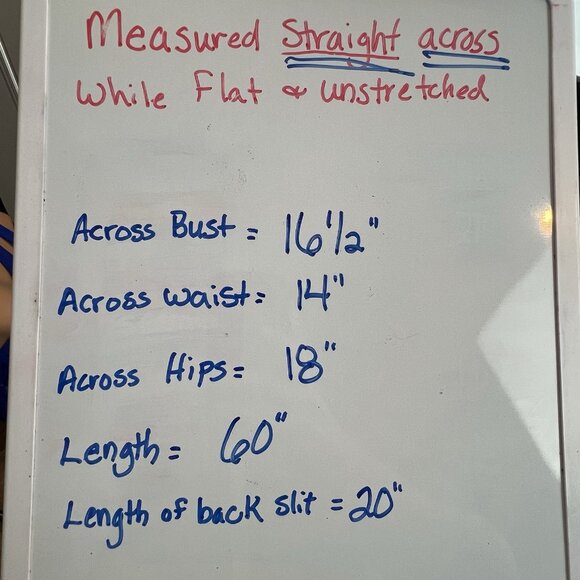 Measured Straight across
While Flat & unstretched
Across Bust = 16 1/2"
Across waist = 14"
Across Hips = 18"
Length = 60"
Length of back slit = 20"